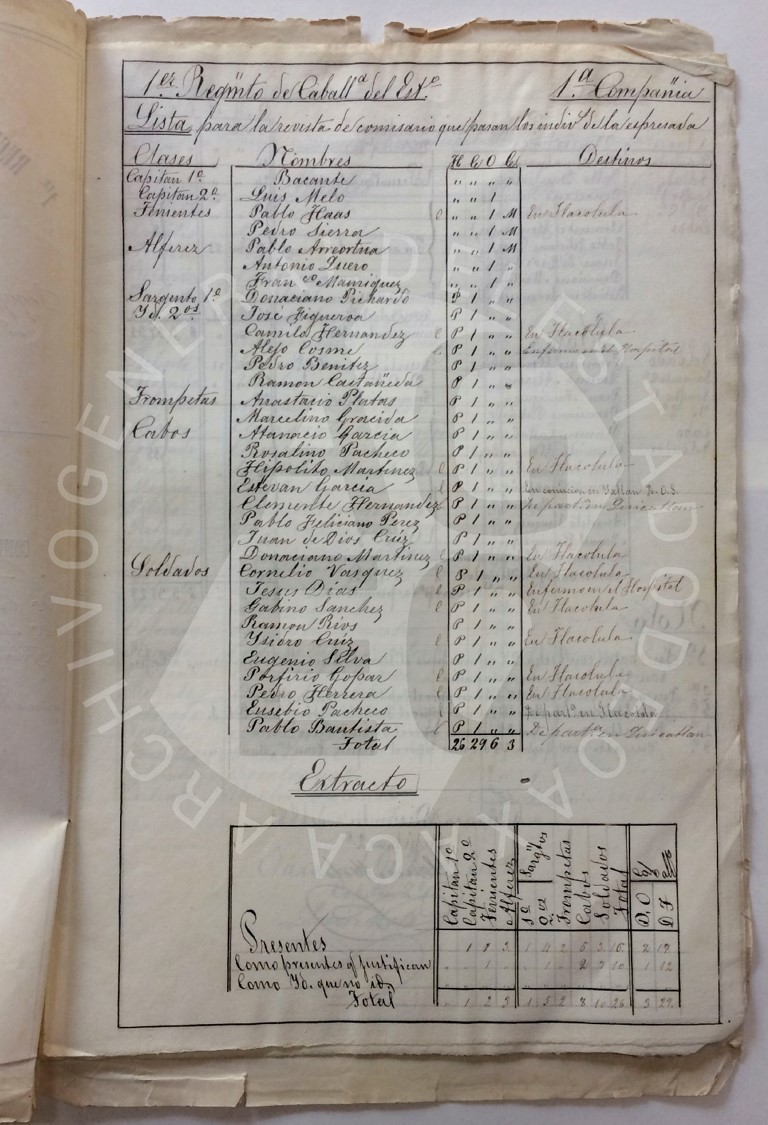 1er Regmto de Caballa del Esto 1a Compañia
Lista para la revista de comisario que pasan los indivs de la espresada
Clases Nombres H C O C Destinos
Capitan 1o Bacante " " " "
Capitan 2o Luis Melo " " 1
Tenientes Pablo Haas l " " 1 M En Tlacolula
Pedro Sierra " " 1 M
Alferez Pablo Arreortua " " 1 M
Antonio Zuero " " 1
Franco Manriquez " " 1 "
Sargento 1o Donaciano Pichardo P 1 " "
Yd. 2os Jose Figueroa P 1 " "
Camilo Hernandez l P 1 " " En Tlacolula
Alejo Cosme l P 1 " " Enfermo en el Hospital
Pedro Benitez P 1 " "
Ramon Castañeda P 1 " "
Trompetas Anastacio Platas P 1 " "
Marcelino Gracida P 1 " "
Cabos Atanacio Garcia P 1 " "
Rosalino Pacheco P 1 " "
Hipolito Martinez l P 1 " " En Tlacolula
Estevan Garcia l P 1 " " En comicion en
Clemente Hernandez l P 1 " " De part en
Pablo Feliciano Perez P 1 " "
Juan de Dios Crúz P 1 " "
Donaciano Martinez l P 1 " " En Tlacolula
Soldados Cornelio Vasquez l P 1 " " En Tlacolula
Jesus Dias l P 1 " " Enfermo en el Hospital
Gabino Sanchez l P 1 " " En Tlacolula
Ramon Rios P 1 " "
Ysidro Cruz l P 1 " " En Tlacolula
Eugenio Silva P 1 " "
Porfirio Gopar l P 1 " " En Tlacolula
Pedro Herrera l P 1 " " En Tlacolula
Eusebio Pacheco l P 1 " " De parte en Tlacolula
Pablo Bautista l P 1 " " De parte en
Total 26 29 6 3
Extracto
Sargtos
Capitan 1o Capitan 2o Tenientes Alferez 1o 2os Trompetas Cabos Soldados Total D. O D F
Presentes 1 1 3 1 4 2 6 3 16 2 17
Como presentes q justifican 1 1 2 7 10 1 12
Como Yd. que no id.
Total 1 2 3 1 5 2 8 10 26 3 29
ARCHIVO GENERAL DEL ESTADO DE OAXACA